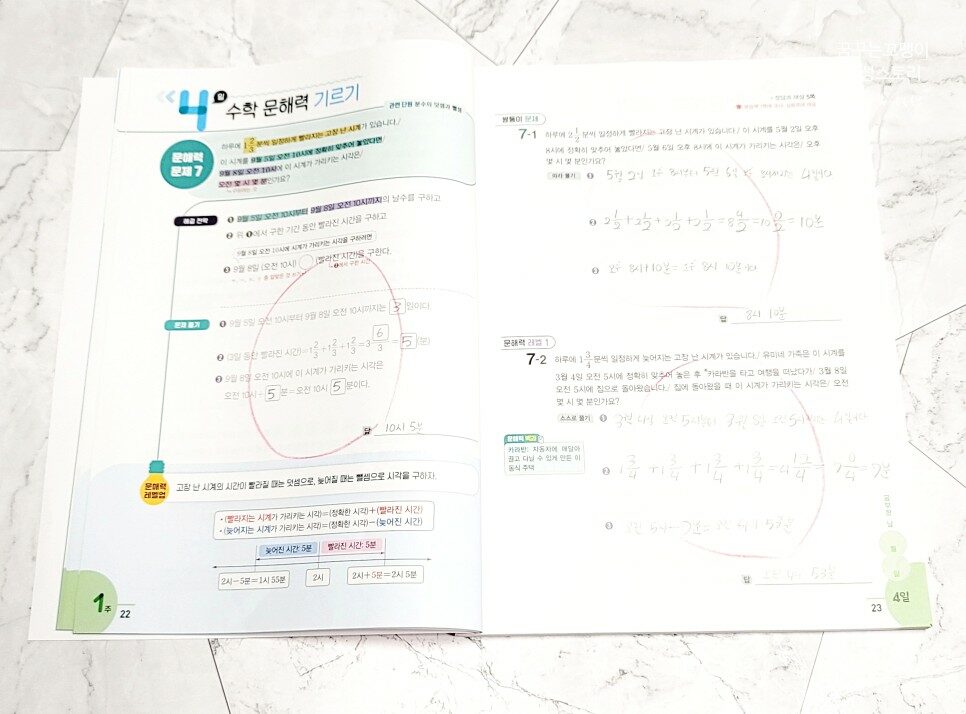 꿈꾸는꼬쟁이
4일
수학 문해력 기르기
관련 단원 분수의 덧셈과 뺄셈
문해력
문제 7
하루에 1 2/3 분씩 일정하게 빨라지는 고장 난 시계가 있습니다./
이 시계를 9월 5일 오전 10시에 정확히 맞추어 놓았다면/
9월 8일 오전 10시에 이 시계가 가리키는 시각은/
오전 몇 시 몇 분인가요?
구하려는 것
해결 전략
❶ 9월 5일 오전 10시부터 9월 8일 오전 10시까지의 날수를 구하고
❷ 위 ❶에서 구한 기간 동안 빨라진 시간을 구하고
9월 8일 오전 10시에 시계가 가리키는 시각을 구하려면
❸ 9월 8일 (오전 10시) ○ (빨라진 시간)을 구한다.
❷에서 구한 시간
문제 풀기
❶ 9월 5일 오전 10시부터 9월 8일 오전 10시까지는 3 일이다.
❷ (3일 동안 빨라진 시간)=1 2/3+1 2/3+1 2/3=3 6/3=5(분)
❸ 9월 8일 오전 10시에 이 시계가 가리키는 시각은
오전 10시+5분=오전 10시 5분이다.
답 10시 5분
문해력
레벨업
고장 난 시계의 시간이 빨라질 때는 덧셈으로, 늦어질 때는 뺄셈으로 시각을 구하자.
• (빨라지는 시계가 가리키는 시각)=(정확한 시각)+(빨라진 시간)
• (늦어지는 시계가 가리키는 시각)=(정확한 시각)−(늦어진 시간)
늦어진 시간: 5분 빨라진 시간: 5분
2시−5분=1시 55분 2시 2시+5분=2시 5분
1주 22
정답과 해설 5쪽
쌍둥이 문제
7-1 하루에 2 1/2 분씩 일정하게 빨라지는 고장 난 시계가 있습니다./ 이 시계를 5월 2일 오후
8시에 정확히 맞추어 놓았다면/ 5월 6일 오후 8시에 이 시계가 가리키는 시각은/ 오후
몇 시 몇 분인가요?
따라 풀기 ❶ 5월 2일 오후 8시부터 5월 6일 오후 8시까지는 4일이다
❷ 2 1/2+2 1/2+2 1/2+2 1/2=8 4/2=10분
❸ 오후 8시+10분=오후 8시 10분이다
답 8시 10분
문해력 레벨 1
7-2 하루에 1 3/4 분씩 일정하게 늦어지는 고장 난 시계가 있습니다./ 유미네 가족은 이 시계를
3월 4일 오전 5시에 정확히 맞추어 놓은 후 *카라반을 타고 여행을 떠났다가/ 3월 8일
오전 5시에 집으로 돌아왔습니다./ 집에 돌아왔을 때 이 시계가 가리키는 시각은/ 오전
몇 시 몇 분인가요?
스스로 풀기 ❶
문해력 백과
카라반: 자동차에 매달아
끌고 다닐 수 있게 만든 이
동식 주택
❷ 1 3/4+1 3/4+1 3/4+1 3/4=4 12/4=7분
❸ 오전 5시−7분=오전 4시 53분
답 오전 4시 53분
공부한 날
월
일
23 4일